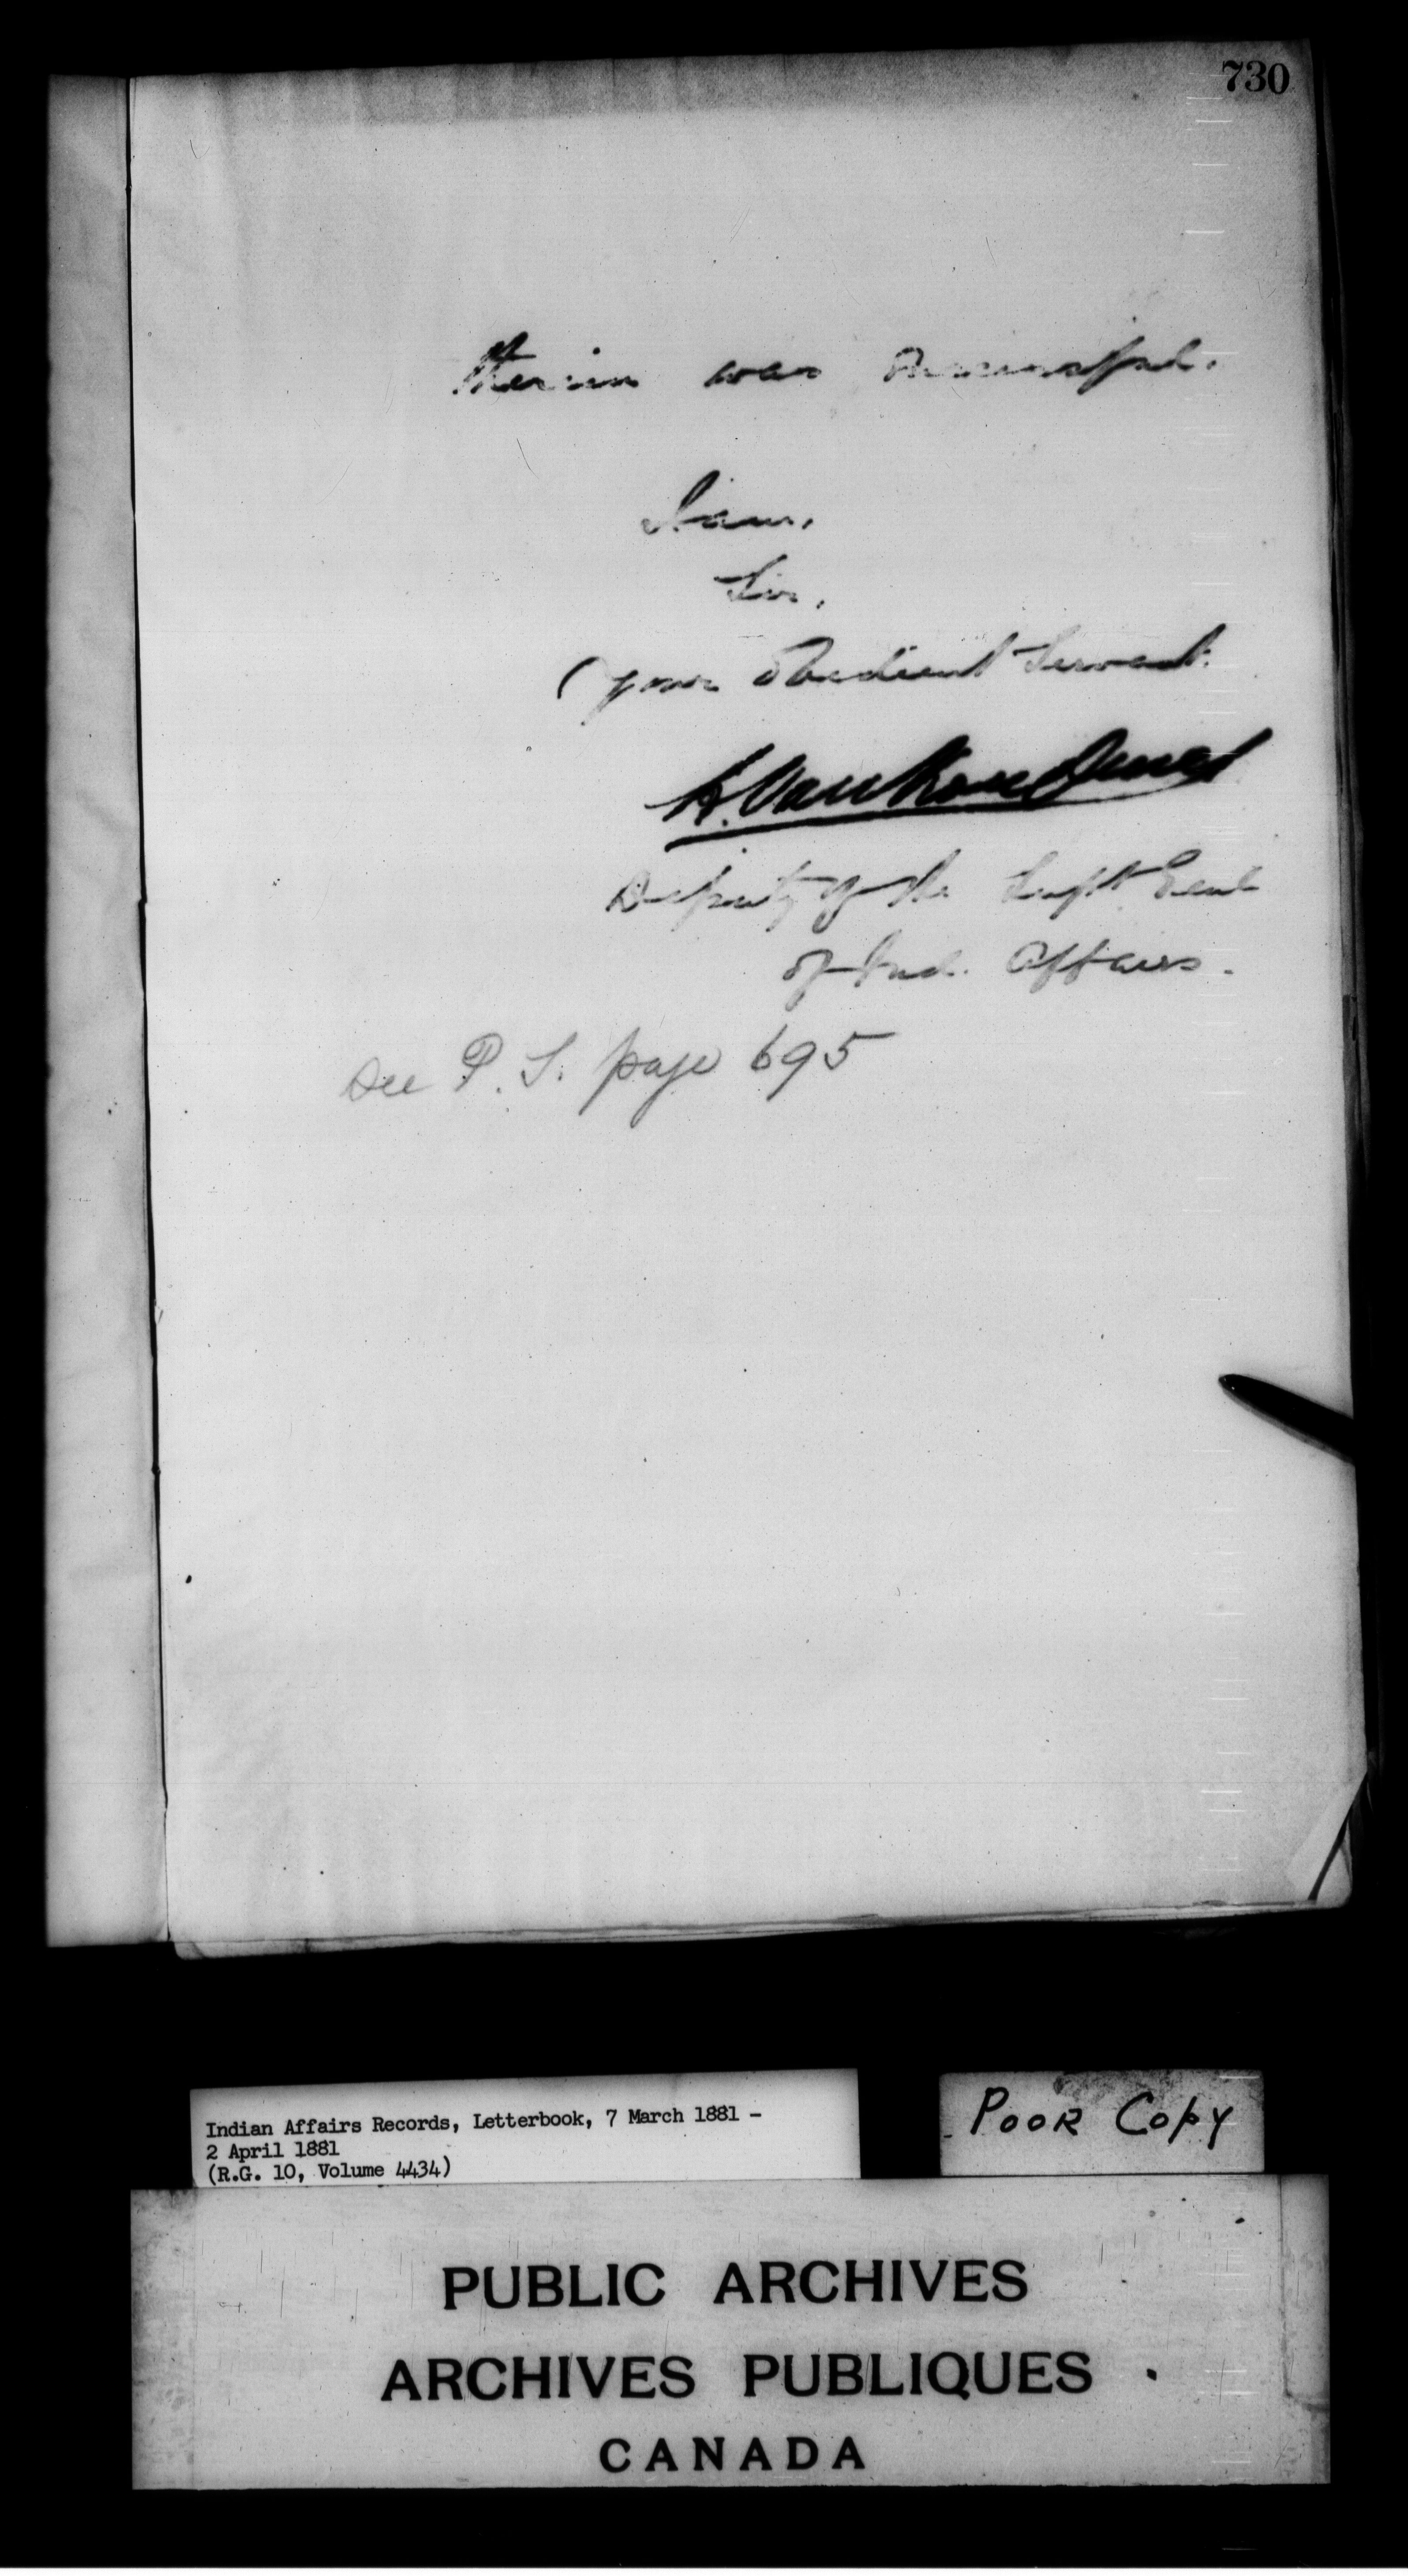 730
therein was successful.
I am,
Sir,
Your Obedient Servant.
L. VanKoughnet
Deputy of the Supt Genl
of Ind. Affairs.
See P. S. page 695
Indian Affairs Records, Letterbook, 7 March 1881 -
2 April 1881
(R.G. 10, Volume 4434)
POOR COPY
PUBLIC ARCHIVES
ARCHIVES PUBLIQUES
CANADA